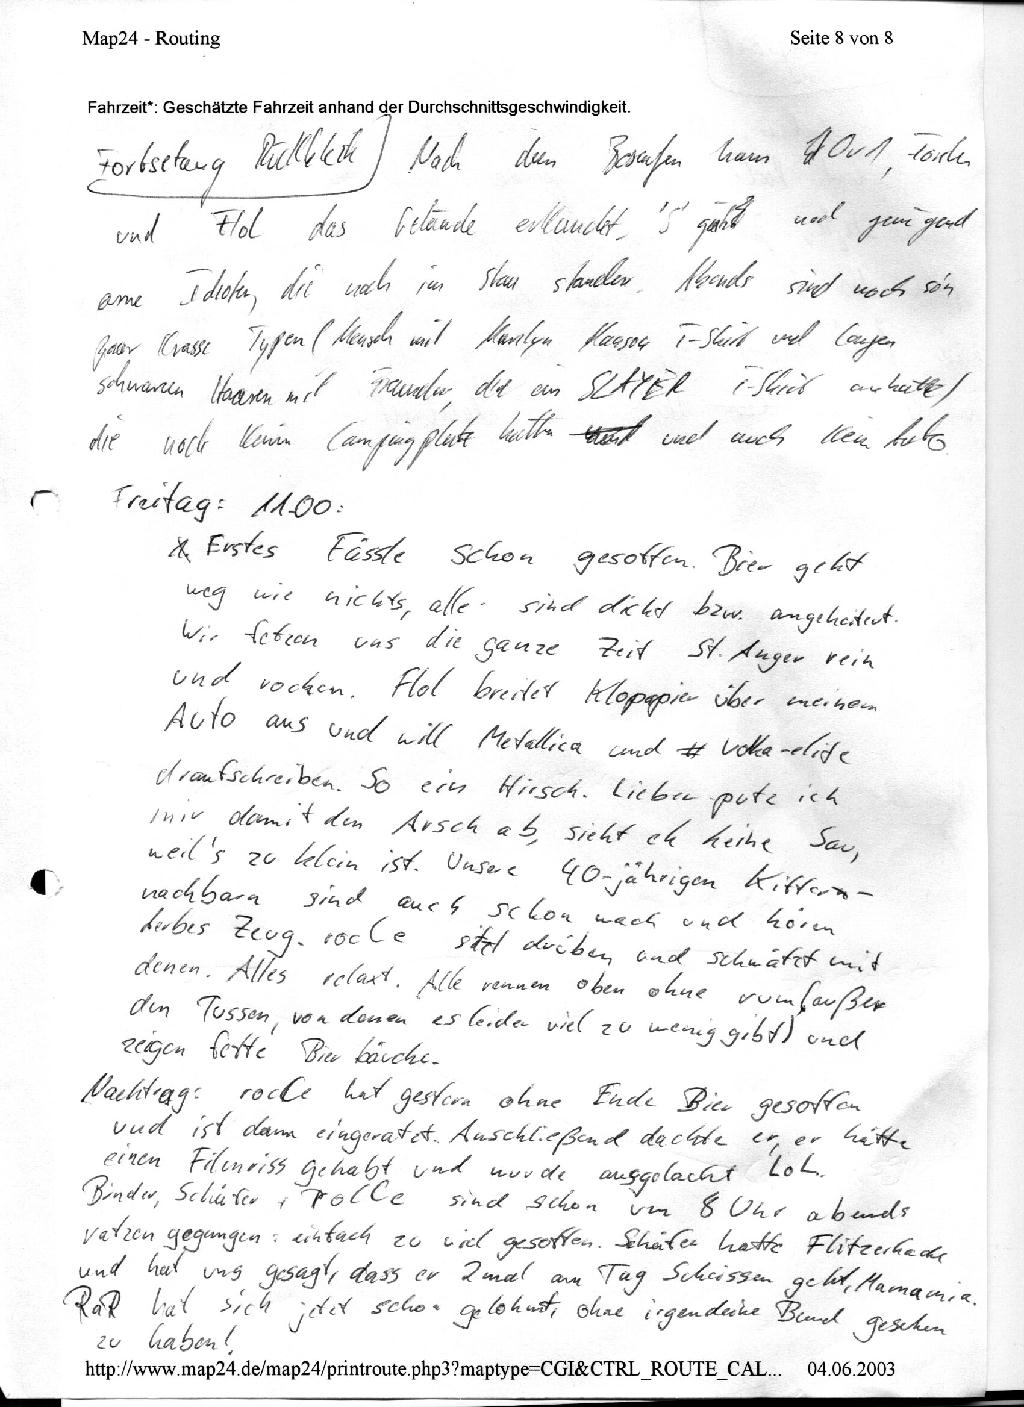 Map24 - Routing Seite 8 von 8
Fahrzeit*: Geschätzte Fahrzeit anhand der Durchschnittsgeschwindigkeit.
Fortsetzung Rückblick Nach dem Besaufen ham
und Flol das Gelände erkundet, 's gibt und genügend
arme Idioten, die noch im Stau standen. Abends sind noch so'n
paar krasse Typen (Mensch mit Marilyn Manson T-Shirt und langen
schwarzen Haaren mit Freundin, die ein SLAYER T-Shirt anhatte)
die noch keinen Campingplatz hatten und auch kein Auto
Freitag: 11.00:
Erstes Fässle schon gesoffen. Bier geht
weg wie nichts, alle sind dicht bzw. angeheitert.
Wir fetzen uns die ganze Zeit St. Anger rein
und rocken. Flol breitet Klopapier über meinem
Auto aus und will Metallica und # volka-elite
draufschreiben. So ein Hirsch. Lieber putz ich
mir damit den Arsch ab, sieht eh keine Sau,
weil's zu klein ist. Unsere 40-jährigen Kiffer-
nachbarn sind auch schon wach und hören
derbes Zeug. rocCe sitzt drüben und schwätzt mit
denen. Alles relaxt. Alle rennen oben ohne rum (außer
den Tussen, von denen es leider viel zu wenig gibt) und
zeigen fette Bierbäuche.
Nachtrag: rocCe hat gestern ohne Ende Bier gesoffen
und ist dann eingeratzt. Anschließend dachte er, er hätte
einen Filmriss gehabt und wurde ausgelacht LoL.
Binder, Schäfer + rocCe sind schon um 8 Uhr abends
ratzen gegangen: einfach zu viel gesoffen. Schäfer hatte Flitzerkacke
und hat uns gesagt, dass er 2mal am Tag Scheissen geht, Mamamia.
RaR hat sich jetzt schon gelohnt, ohne irgendeine Band gesehen
zu haben!
http://www.map24.de/map24/printroute.php3?maptype=CGI&CTRL_ROUTE_CAL... 04.06.2003